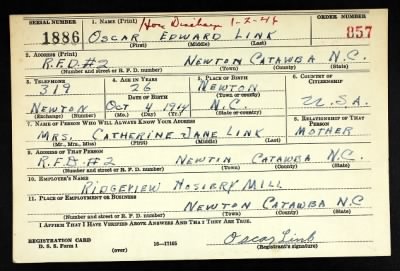 SERIAL NUMBER 1. NAME (Print) Hon Discharge 1-2-46 ORDER NUMBER
1886 OSCAR EDWARD LINK 857
(First) (Middle) (Last)
2. ADDRESS (Print)
R.F.D.#2 NEWTON CATAWBA N.C.
(Number and street or R. F. D. number) (Town) (County) (State)
3. TELEPHONE 4. AGE IN YEARS 5. PLACE OF BIRTH 6. COUNTRY OF CITIZENSHIP
319 26 NEWTON
DATE OF BIRTH (Town or county)
NEWTON OCT 4 1914 N.C. U.S.A.
(Exchange) (Number) (Mo.) (Day) (Yr.) (State or country)
7. NAME OF PERSON WHO WILL ALWAYS KNOW YOUR ADDRESS 8. RELATIONSHIP OF THAT PERSON
MRS. CATHERINE JANE LINK MOTHER
(Mr., Mrs., Miss) (First) (Middle) (Last)
9. ADDRESS OF THAT PERSON
R.F.D.#2 NEWTON CATAWBA N.C.
(Number and street or R. F. D. number) (Town) (County) (State)
10. EMPLOYER'S NAME
RIDGEVIEW HOSIERY MILL
11. PLACE OF EMPLOYMENT OR BUSINESS
NEWTON CATAWBA N.C
(Number and street or R. F. D. number) (Town) (County) (State)
I AFFIRM THAT I HAVE VERIFIED ABOVE ANSWERS AND THAT THEY ARE TRUE.
REGISTRATION CARD Oscar Link
D. S. S. Form 1 (over) 16—17105 (Registrant's signature)